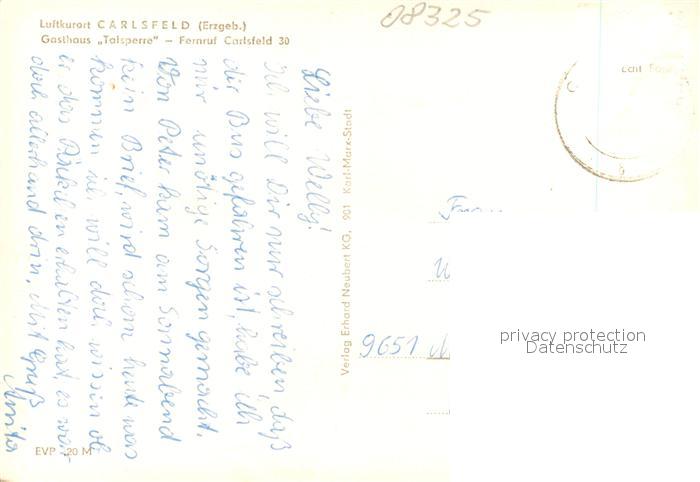 Luftkurort CARLSFELD (Erzgeb.)
Gasthaus „Talsperre" – Fernruf Carlsfeld 30
08325
Liebe Welly!
Ich will Dir nur schreiben, daß
der Bus gefahren ist, habe ich
mir unötige Sorgen gemacht.
Von Peter kam am Sonnabend
kein Brief, wird schon heute was
kommen, ich will doch wissen ob
er das Päckchen erhalten hat, es war
doch allerhand drin. Mit Gruß
Anita
Verlag Erhard Neubert KG, 901 Karl-Marx-Stadt
9651
privacy protection
Datenschutz
EVP -,20 M